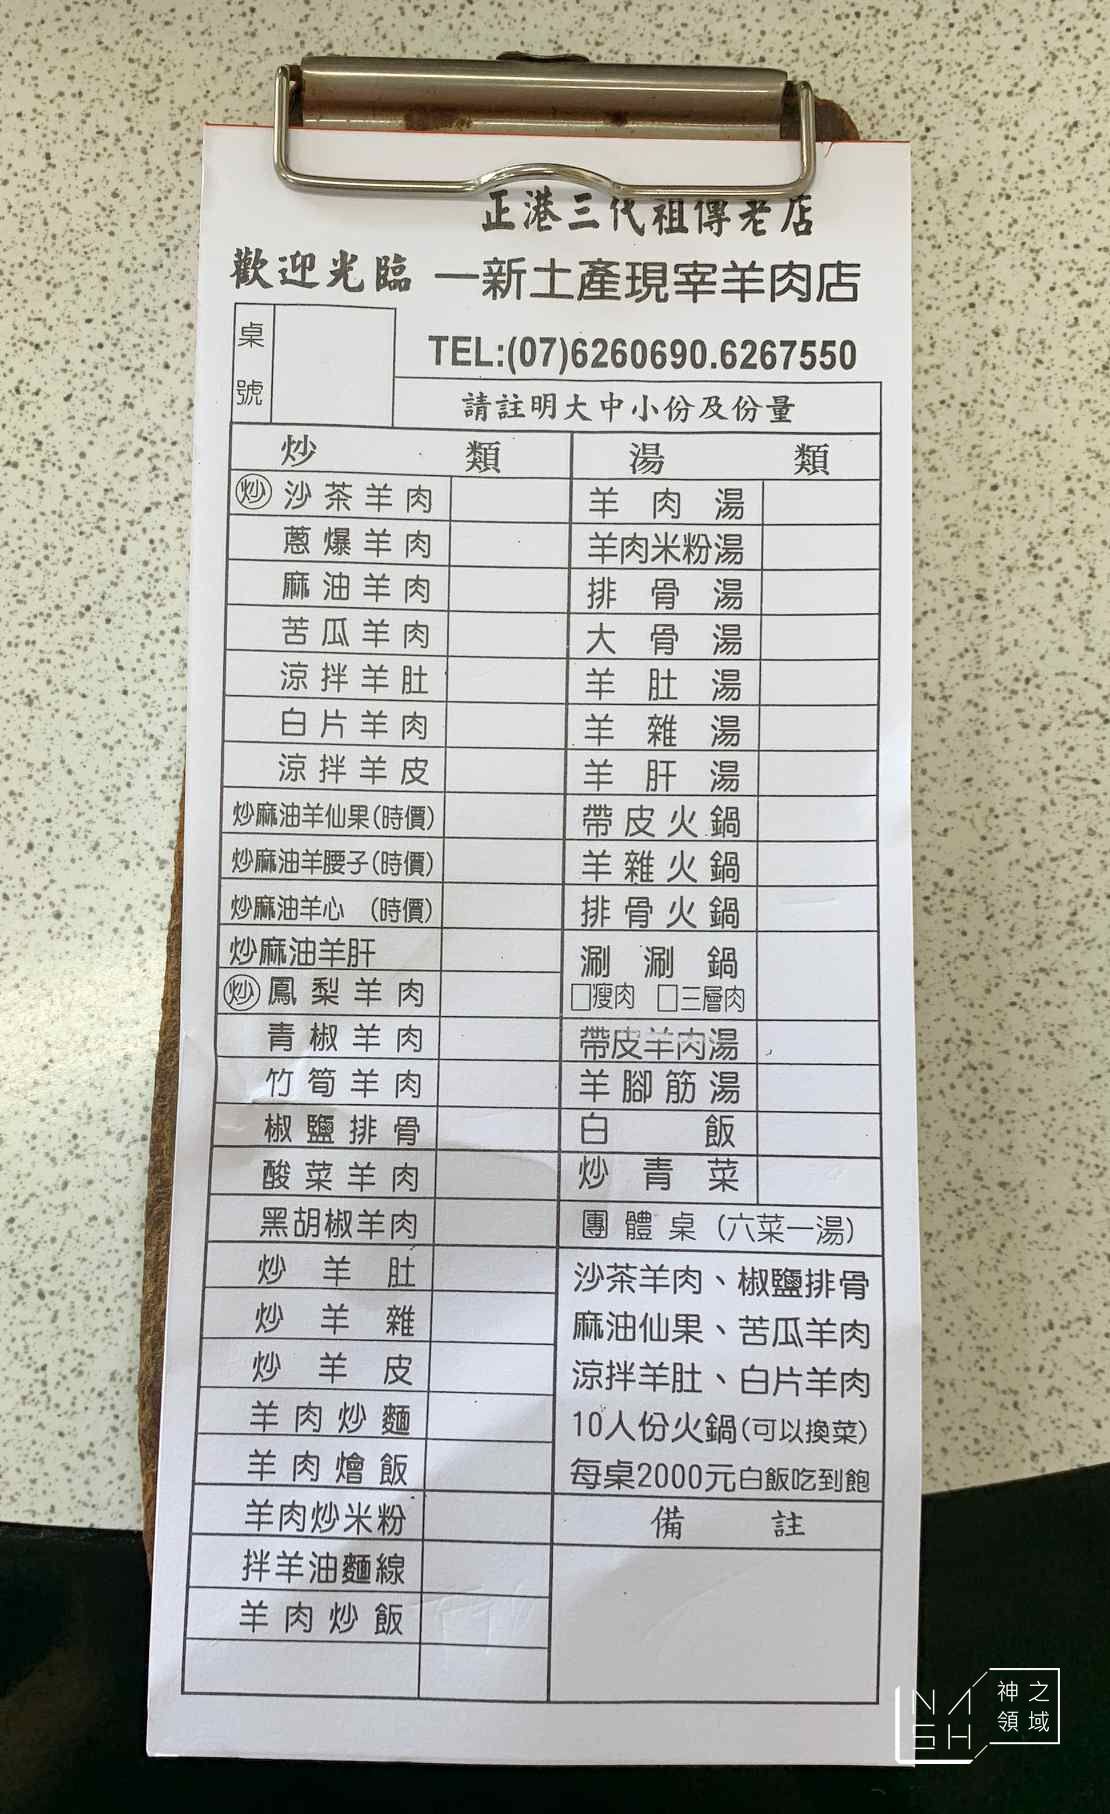 正港三代祖傳老店
歡迎光臨 一新土產現宰羊肉店
桌號
TEL:(07)6260690.6267550
請註明大中小份及份量
炒類
㊋沙茶羊肉
蔥爆羊肉
麻油羊肉
苦瓜羊肉
涼拌羊肚
白片羊肉
涼拌羊皮
炒麻油羊仙果(時價)
炒麻油羊腰子(時價)
炒麻油羊心 (時價)
炒麻油羊肝
炒 鳳梨羊肉
青椒羊肉
竹筍羊肉
椒鹽排骨
酸菜羊肉
黑胡椒羊肉
炒羊肚
炒羊雜
炒羊皮
羊肉炒麵
羊肉燴飯
羊肉炒米粉
拌羊油麵線
羊肉炒飯
湯類
羊肉湯
羊肉米粉湯
排骨湯
大骨湯
羊肚湯
羊雜湯
羊肝湯
帶皮火鍋
羊雜火鍋
排骨火鍋
涮涮鍋
□瘦肉 □三層肉
帶皮羊肉湯
羊腳筋湯
白飯
炒青菜
團體桌(六菜一湯)
沙茶羊肉、椒鹽排骨
麻油仙果、苦瓜羊肉
涼拌羊肚、白片羊肉
10人份火鍋(可以換菜)
每桌2000元白飯吃到飽
備註
NASH 神之領域